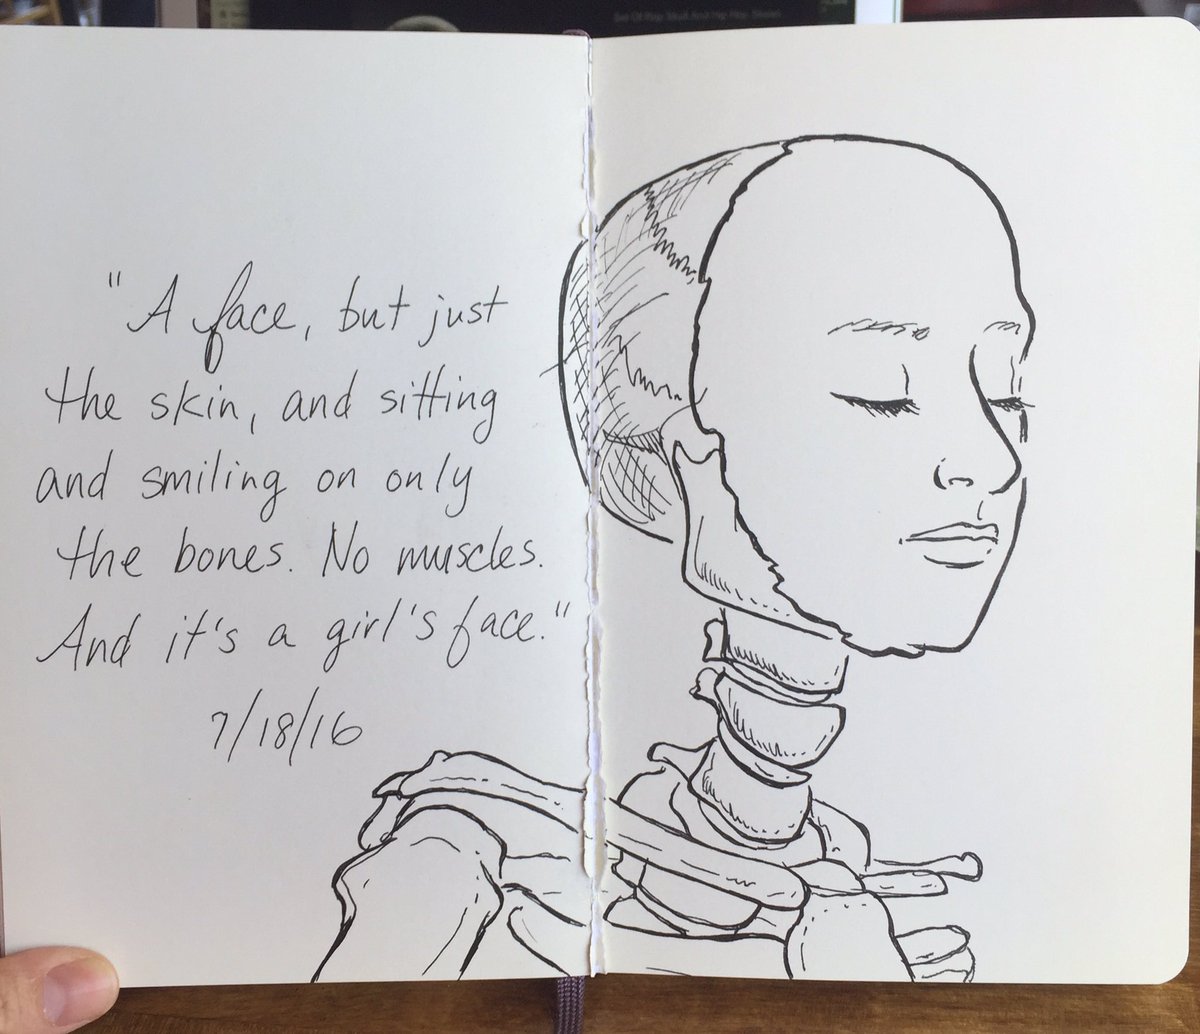 "A face, but just
the skin, and sitting
and smiling on only
the bones. No muscles.
And it's a girl's face."
7/18/16